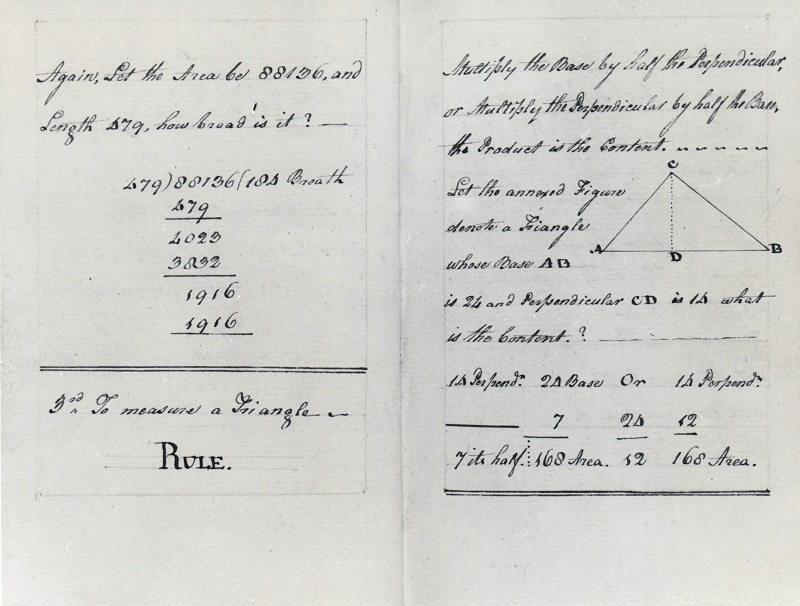 Again, Let the Area be 88136, and
Length 479, how broad is it?
479)88136(184 Breath
479
4023
3832
1916
1916
3rd To measure a Triangle
RULE.
Multiply the Base by half the Perpendicular,
or Multiply the Perpendicular by half the Base,
the Product is the Content.
Let the annexed Figure
denote a Triangle
whose Base AB
is 24 and Perpendicular CD is 14 what
is the Content.?
C
A
D
B
14 Perpendr. 24 Base Or 14 Perpendr.
7 24 12
7 its half. 168 Area. 12 168 Area.